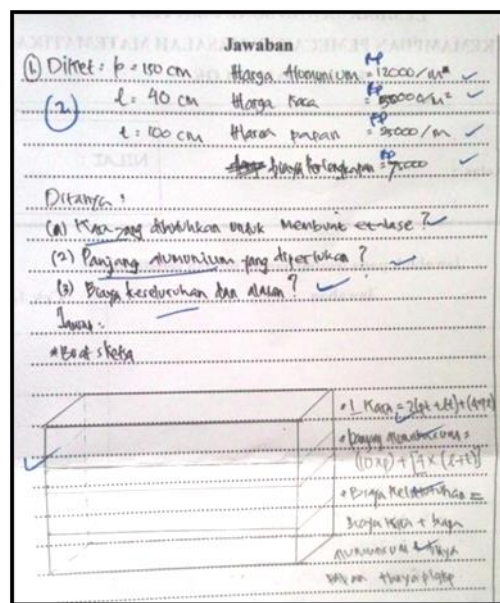 Jawaban
① Diket : p = 150 cm Harga Alumunium = Rp 12000/m
(2) l = 40 cm Harga Kaca = Rp 50000/m²
t = 100 cm Harga papan = Rp 25000/m
biaya Perlengkapan = Rp 75000
Ditanya :
(1) Kaca yang dibutuhkan untuk membuat et-lase ?
(2) Panjang alumunium yang diperlukan ?
(3) Biaya keseluruhan dan alasan ?
Jawab :
*Buat sketsa
• L Kaca = 2(pt + lt) +
• panjang alumunium =
(10 x p) + [4 x (l+t)]
• Biaya Keseluruhan =
Biaya Kaca + biaya
alumunium + biaya
papan + biaya